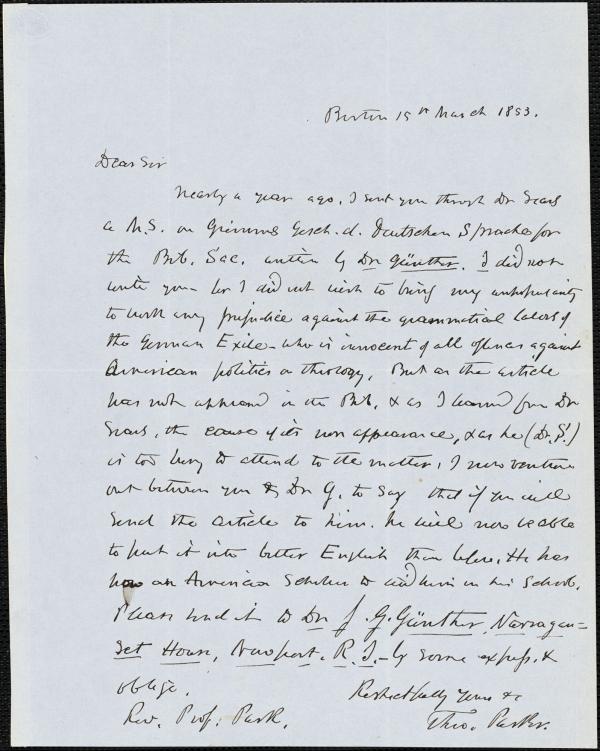 Boston 15th March 1853.
Dear Sir
Nearly a year ago, I sent you through Dr Sears
a M.S. on Grimms Gesch. d. Deutschen Sprache for
the Bib. Sac. written by Dr Günther. I did not
write you for I did not wish to bring my unpopularity
to work any prejudice against the grammatical labors of
the German Exile - who is innocent of all offences against
American politics or theology. But as the article
has not appeared in the Bib. & as I learned from Dr
Sears, the cause of its non appearance, & as he (Dr. S.)
is too busy to attend to the matter, I now venture
out between you & Dr G. to say that if you will
send the article to him. he will now be able
to put it into better English than before. He has
now an American Scholar to aid him in his School.
Please send it to Dr J. G. Günther, Narragan=
set House, Newport. R. I. - by some express. &
oblige.
Respectfully yours &c
Rev. Prof. Park.
Theo. Parker.